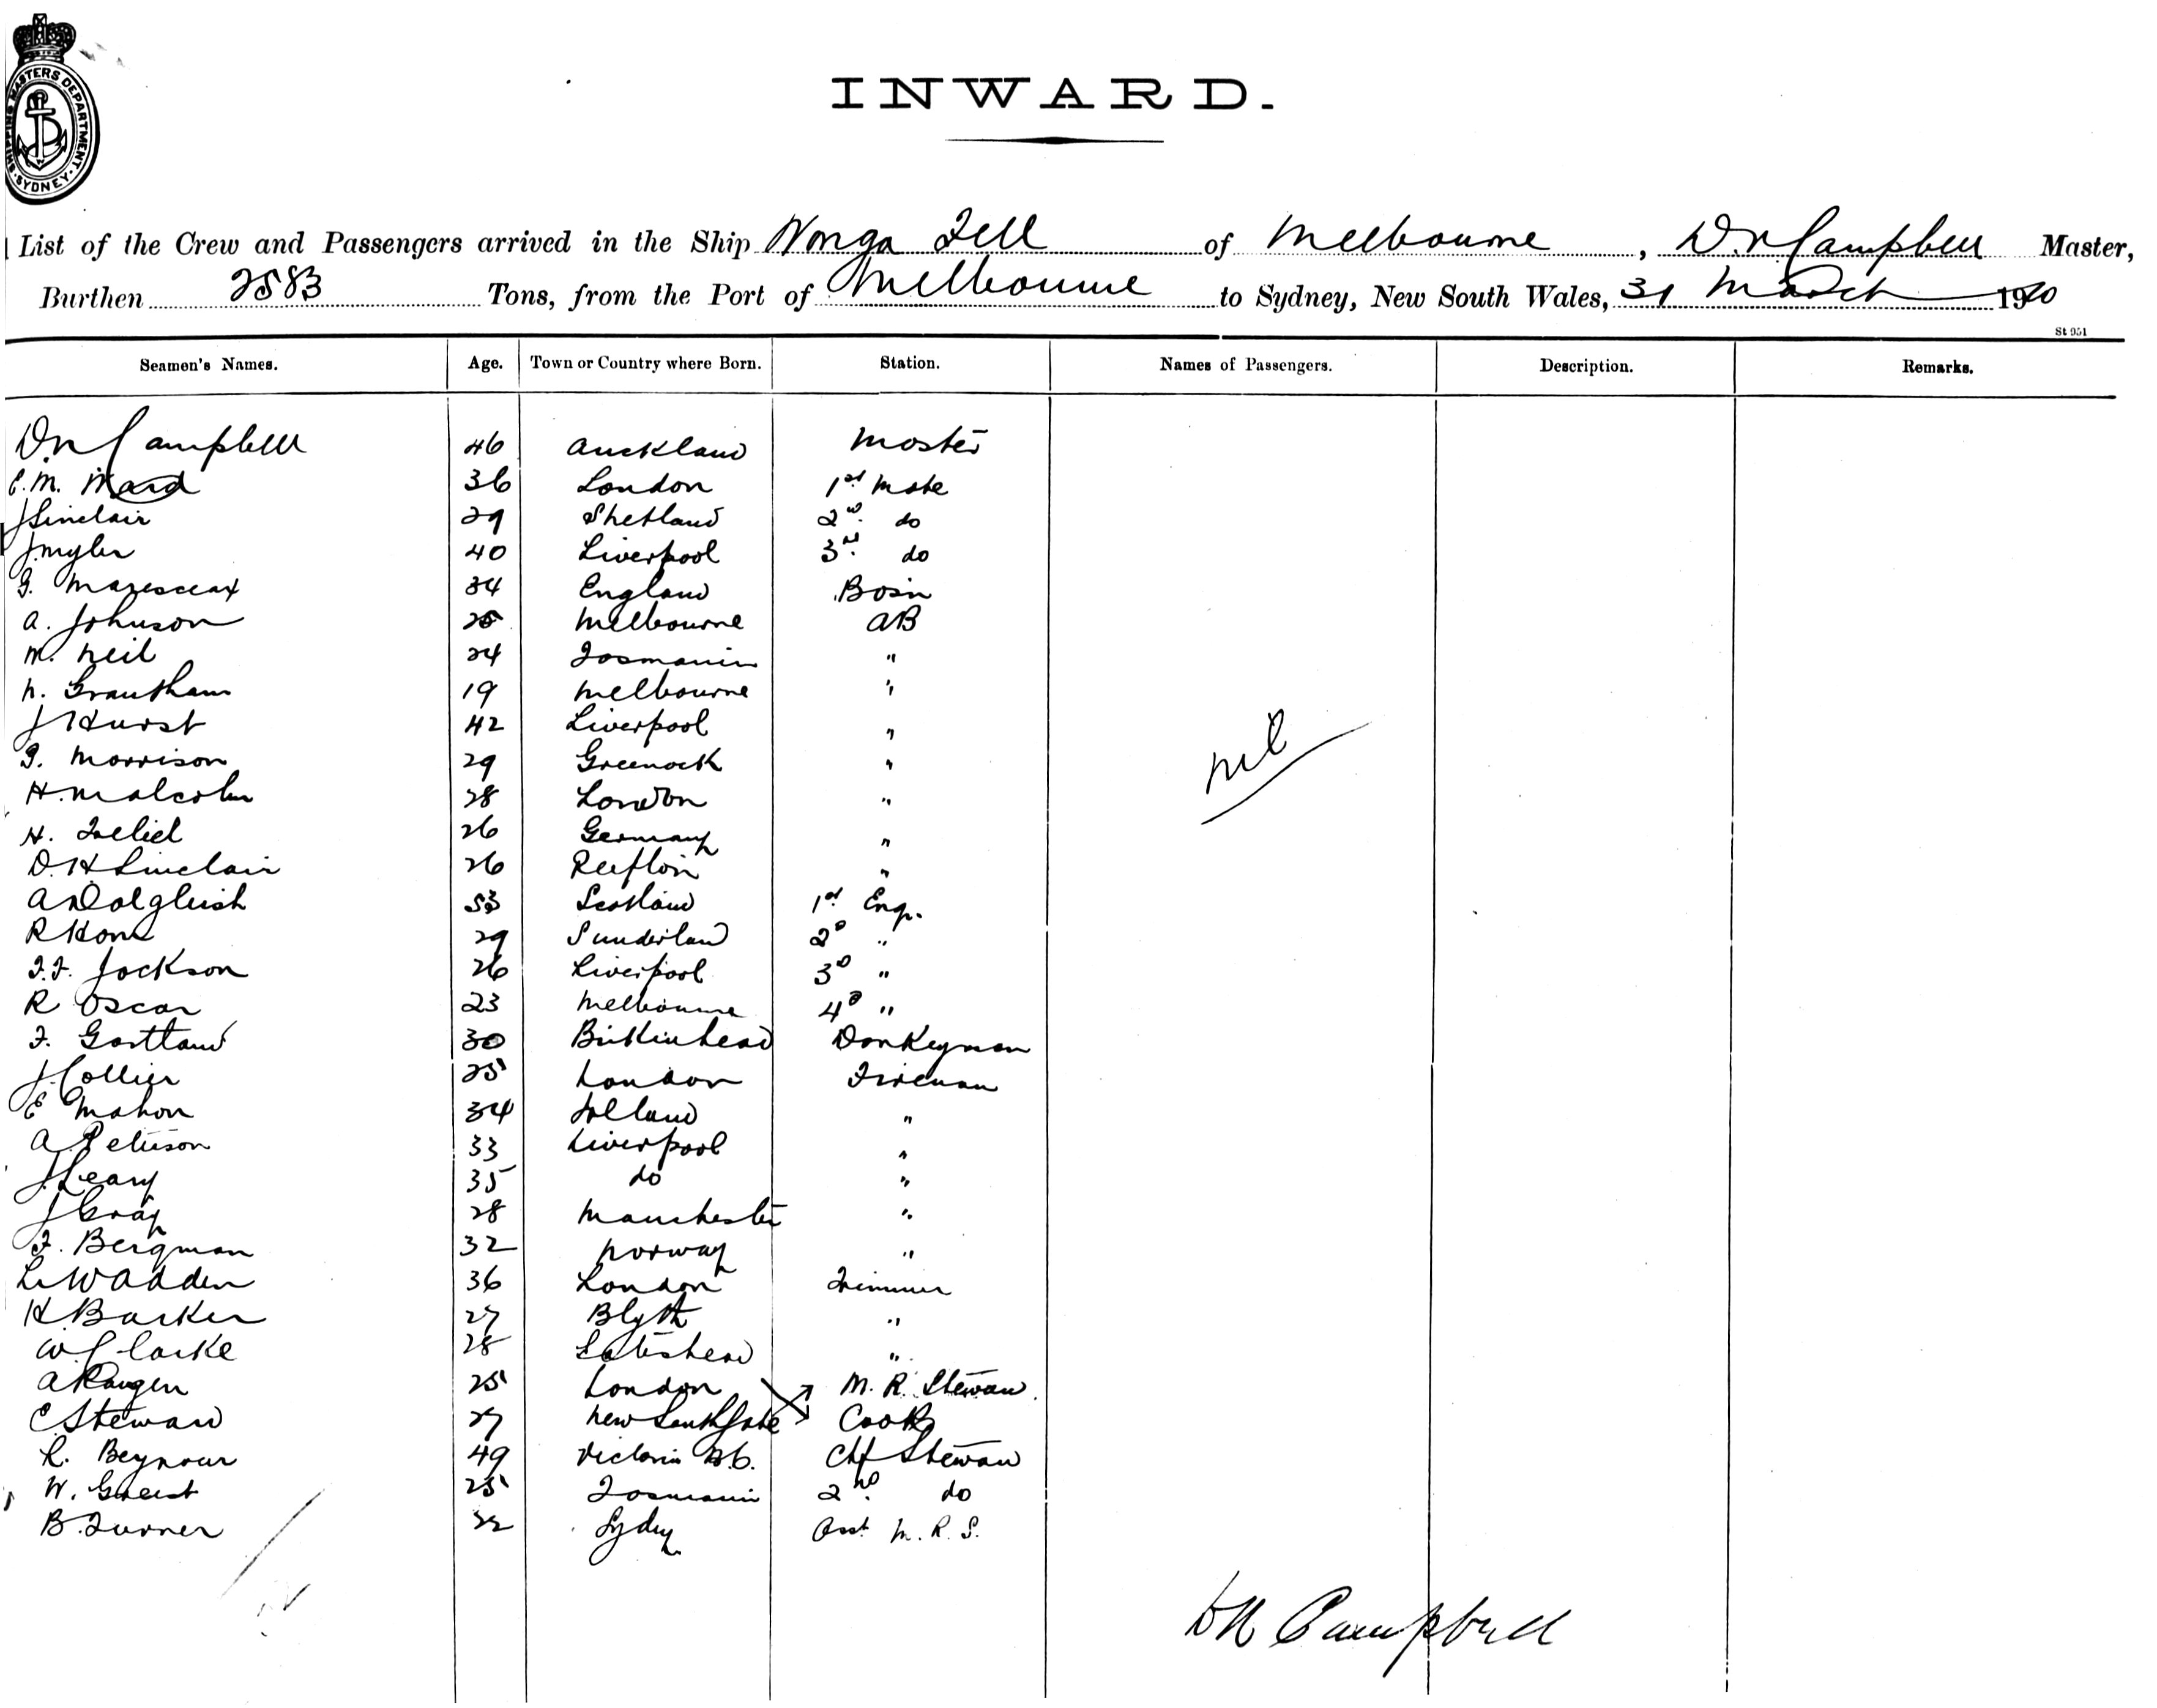 SHIPPING MASTERS DEPARTMENT. SYDNEY.
INWARD.
List of the Crew and Passengers arrived in the Ship Wonga Fell of Melbourne, D.N Campbell Master,
Burthen 2583 Tons, from the Port of Melbourne to Sydney, New South Wales, 31 March 1910
St 951
Seamen's Names. Age. Town or Country where Born. Station. Names of Passengers. Description. Remarks.
D.N Campbell 46 Auckland Master
E.M. Ward 36 London 1st Mate
J Sinclair 29 Shetland 2nd do
J. Myler 40 Liverpool 3rd do
G. 34 England Bosn
A. Johnson Melbourne AB
M. Neil 24 Tasmania "
N. Grantham 19 Melbourne "
J Hurst 42 Liverpool "
G. Morrison 29 Greenock "
H. Malcolm 28 London "
nil
H. 26 Germany "
D. H Sinclair 26 Reefton "
A Dalgleish 53 Scotland 1st Eng.
R 29 Sunderland 2d "
F.F. Jackson 26 Liverpool 3d "
R Oscar 23 Melbourne 4d "
F. Gartland 30 Birkinhead Donkeyman
J. Collier 25 London Fireman
E Mahon 34 "
A Peterson 33 Liverpool "
J. Leary 35 do "
J Gray 28 Manchester "
F. Bergman 32 Norway "
L. Wadden 36 London Trimmer
H Barker 27 Blyth "
W Clarke 28 Gateshead "
A 25 London M. R. Steward.
C Steward 27 New Southgate Cook
R. 49 Victoria B.C. Chf Steward
W. 25 Tasmania 2nd do
B. Turner 22 Sydney Asst M. R. S.
DN Campbell